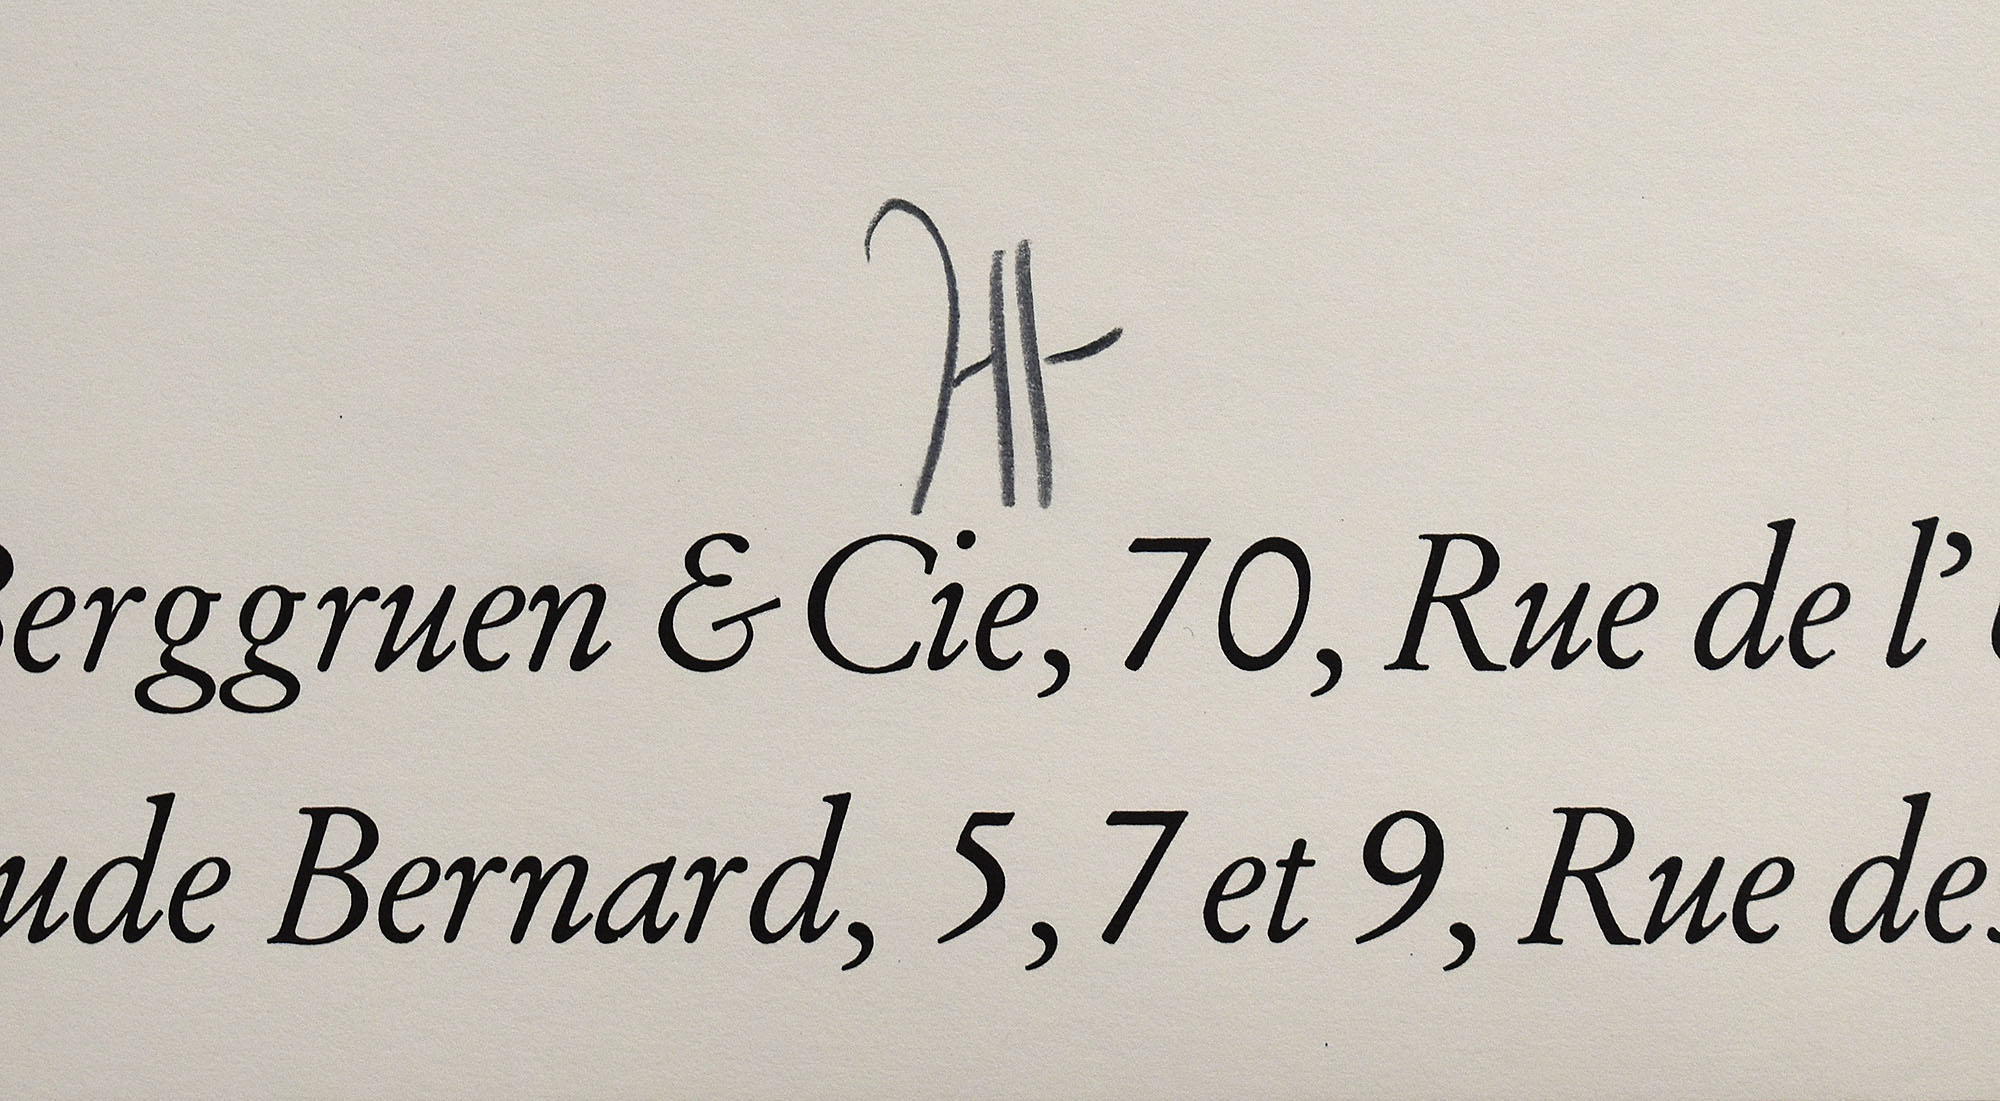 Berggruen & Cie, 70, Rue de l'
ude Bernard, 5, 7 et 9, Rue des